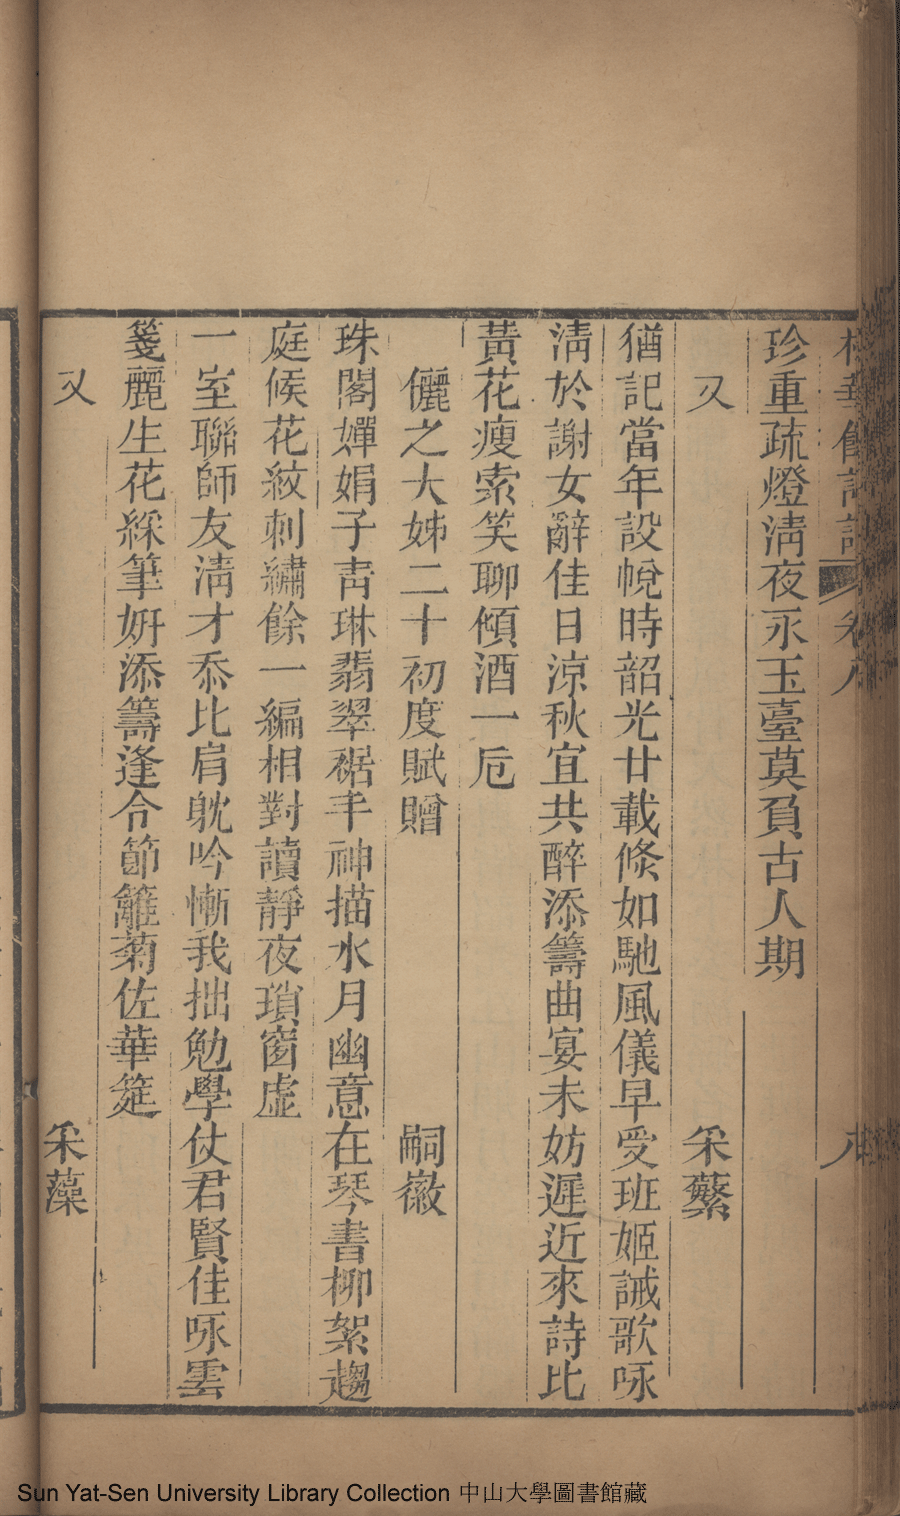 珍重疏燈淸夜永玉臺莫負古人期
又 采蘩
猶記當年設帨時韶光廿載倐如馳風儀早受班姬誡歌咏
淸於謝女辭佳日涼秋宜共醉添籌曲宴未妨遲近來詩比
黃花瘦索笑聊傾酒一卮
儷之大姊二十初度賦贈 嗣徽
珠閣嬋娟子靑琳翡翠裾手神描水月幽意在琴書柳絮趨
庭候花紋刺繡餘一編相對讀靜夜瑣窗虛
一室聯師友淸才忝比肩躭吟慚我拙勉學仗君賢佳咏雲
箋麗生花綵筆姸添籌逢令節籬菊佐華筵
又 采藻
Sun Yat-Sen University Library Collection 中山大學圖書館藏